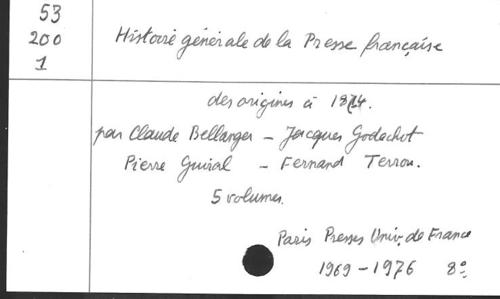 53
200
1
Histoire générale de la Presse française
des origines à 1814.
par Claude Bellanger – Jacques Godechot
Pierre Guiral – Fernand Terrou.
5 volumes.
Paris Presses Univ. de France
1969 – 1976 8º